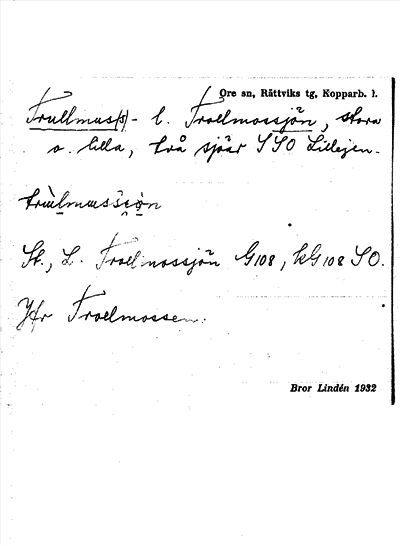 Ore sn, Rättviks tg, Kopparb. l.
Trullmus(s)- l. Troellmossjön, stora
o. lilla, två sjöar SSO Lillejen.
St., L. Troellmossjön G108, kG108 SO.
Jfr Troelmossen.
Bror Lindén 1932